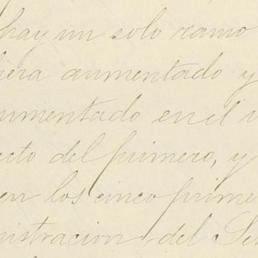 hay un solo ramo
iera aumentado y
umentado en el v
cto del primero, y
en los cinco prime
nistracion del Señ